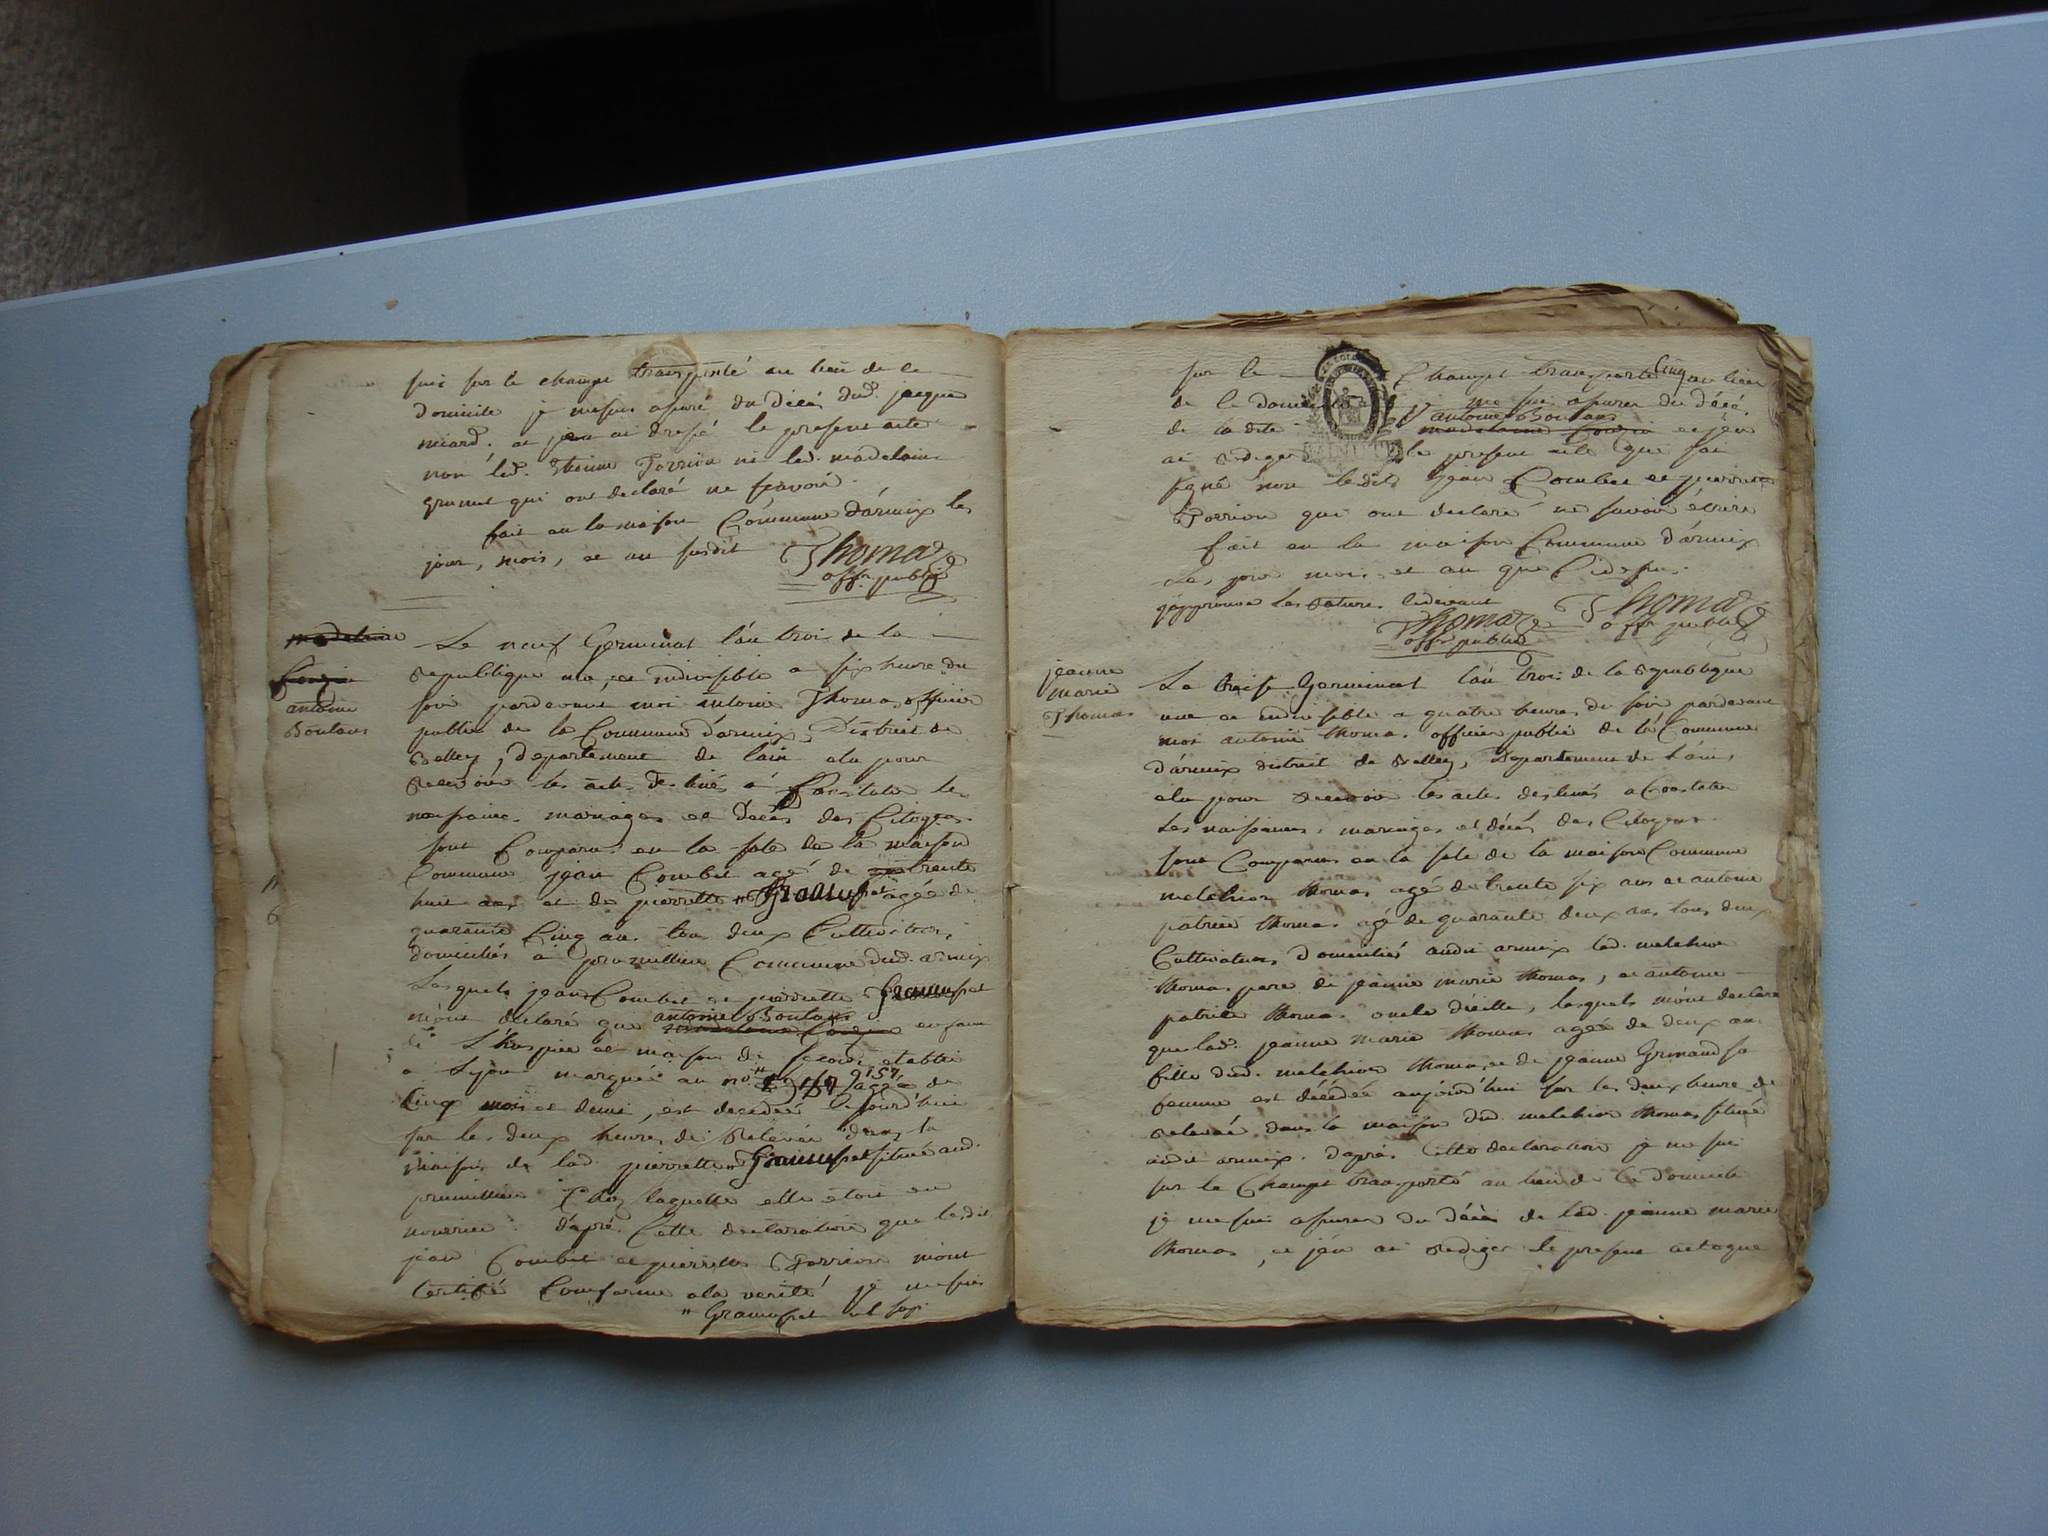 suis sur le champt transporté au lieu de ce
domicile je me suis assuré du décés dud. jacque
miard. et jean ai dressé le present acte
non led. Etienne Torrion ni lad. madelaine
qui ont declaré ne scavoir.
fait en la maison Commune d'armix les
jour, mois, et an susdit Thomas
offr. public
madelaine
antoine
Boulans
Le neuf Germinal l'an trois de la
Republique une, et indivisible a six heure du
soir pardevant moi antoine Thomas officier
public de la Commune d'armix, District de
Belley, Departement de lain elu pour
Recevoir les actes destinés a Constater les
naissance. mariages et Décés des Citoyens.
sont Comparus en la sale de la maison
Commune jean Combet agé de trente
huit ans et de pierrette " Gramusset agée de
quarante Cinq ans tous deux Cultivateurs
domiciliés a premillieu Commune dud. armix
Lesquels jean Combet et pierrette Gramusset
m'ont declaré que antoine Boulans enfant
de L'hospice et maison de secours etablie
a Lyon marquée au no. 157 agée de
Cinq mois et demi, est decedée aujourd'huie
sur les deux heures de Relevée dans la
maison de lad. pierrette " Gramusset située aud.
premillieu Chez laquelle elle étoit en
nourrice. d'aprés Cette declaration que lesdit
jean Combet et pierrette Torrion m'ont
Certifié Conforme a la verité je me suis
" Gramusset
Cinq
sur le Champt transporté au lieu
de le domicile je me suis assurer du Décé.
antoine Boulans
de ladite madelaine et jen
ai Rediger le present acte que jai
signé non lesdits jean Combet et pierrette
Torrion qui ont declaré ne savoir écrire
fait en la maison Commune d'armix
Les jour mois et an que Cidessus.
japprouve les Rature. cidevant
Thomas Thomas
offr public offr public
jeanne
marie
Thomas
Le treise Germinal l'an trois de la Republique
une et indivisible a quatre heures du soir pardevant
moi antoine thomas officier public de la Commune
d'armix district de Belley, Departement de l'ain,
elu pour Recevoir les actes destinés a Constater
Les naissances, mariages et décés des Citoyens.
sont Comparus en la sale de la maison Commune
melchior thomas agé de trente six ans et antoine
patrice thomas agé de quarante deux ans tous deux
Cultivateurs Domiciliés audit armix led. melchior
thomas pere de jeanne marie thomas, et antoine
patrice thomas oncle d'icelle, lesquels m'ont declaré
que lad. jeanne marie thomas agée de deux ans
fille dud. melchior thomas et de jeanne Grinand sa
femme est décédée aujourd'hui sur les deux heure de
Relevée dans la maison dud. melchior thomas située
audit armix. d'aprés Cette declaration je me suis
sur le Champt transporté au lieu de Ce domicile
je me suis assurer du décés de lad. jeanne marie
thomas, et jen ai Rediger le present acte que